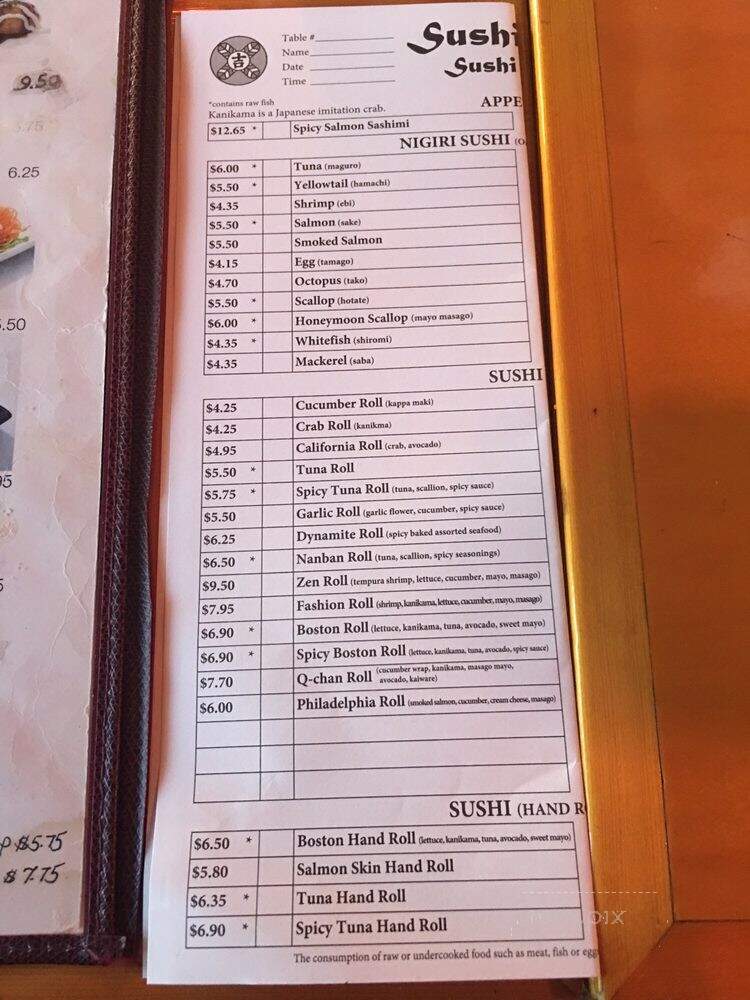 9.50
3.75
6.25
5.50
95
5
P $5.75
$7.75
吉
Table #
Name
Date
Time
Sushi
Sushi
*contains raw fish
Kanikama is a Japanese imitation crab.
APPE
$12.65 * Spicy Salmon Sashimi
NIGIRI SUSHI (o
$6.00 * Tuna (maguro)
$5.50 * Yellowtail (hamachi)
$4.35 Shrimp (ebi)
$5.50 * Salmon (sake)
$5.50 Smoked Salmon
$4.15 Egg (tamago)
$4.70 Octopus (tako)
$5.50 * Scallop (hotate)
$6.00 * Honeymoon Scallop (mayo masago)
$4.35 * Whitefish (shiromi)
$4.35 Mackerel (saba)
SUSHI
$4.25 Cucumber Roll (kappa maki)
$4.25 Crab Roll (kanikma)
$4.95 California Roll (crab, avocado)
$5.50 * Tuna Roll
$5.75 * Spicy Tuna Roll (tuna, scallion, spicy sauce)
$5.50 Garlic Roll (garlic flower, cucumber, spicy sauce)
$6.25 Dynamite Roll (spicy baked assorted seafood)
$6.50 * Nanban Roll (tuna, scallion, spicy seasonings)
$9.50 Zen Roll (tempura shrimp, lettuce, cucumber, mayo, masago)
$7.95 Fashion Roll (shrimp, kanikama, lettuce, cucumber, mayo, masago)
$6.90 * Boston Roll (lettuce, kanikama, tuna, avocado, sweet mayo)
$6.90 * Spicy Boston Roll (lettuce, kanikama, tuna, avocado, spicy sauce)
$7.70 Q-chan Roll (cucumber wrap, kanikama, masago mayo,
avocado, kaiware)
$6.00 Philadelphia Roll (smoked salmon, cucumber, cream cheese, masago)
SUSHI (HAND R
$6.50 * Boston Hand Roll (lettuce, kanikama, tuna, avocado, sweet mayo)
$5.80 Salmon Skin Hand Roll
$6.35 * Tuna Hand Roll
$6.90 * Spicy Tuna Hand Roll
The consumption of raw or undercooked food such as meat, fish or egg